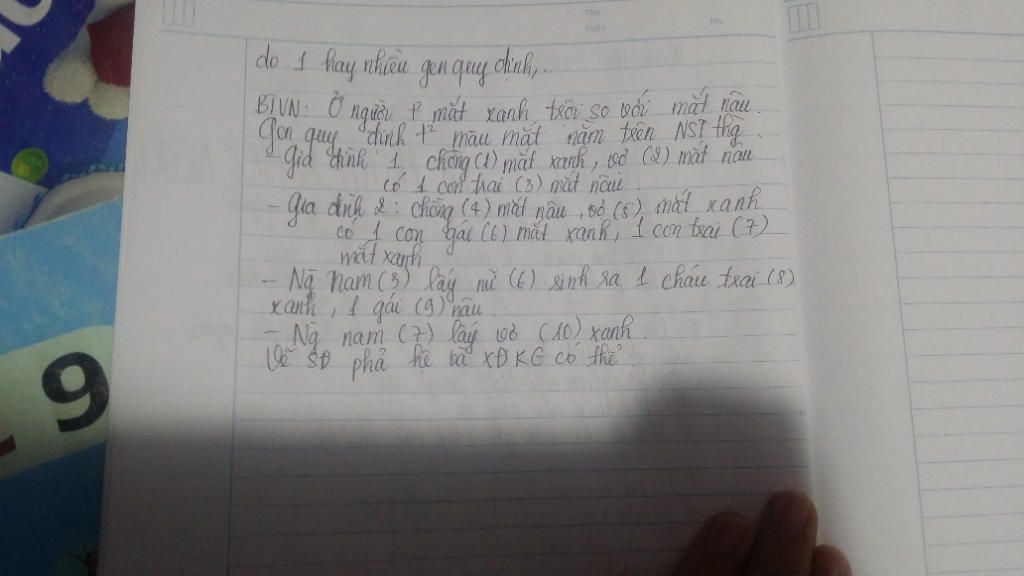 Thứ
Ngày
No.
do 1 hay nhiều gen quy định,..
BTVN: Ở người t² mắt xanh trội so với mắt nâu.
Gen quy định t² màu mắt nằm trên NST thg.
- Gia đình 1 chồng (1) mắt xanh, vợ (2) mắt nâu
có 1 con trai (3) mắt nâu.
- Gia đình 2: chồng (4) mắt nâu, vợ (5) mắt xanh
có 1 con gái (6) mắt xanh, 1 con trai (7)
mắt xanh
- Ng nam (3) lấy nữ (6) sinh ra 1 cháu trai (8)
xanh, 1 gái (9) nâu.
- Ng nam (7) lấy vợ (10) xanh.
Vẽ SĐ phả hệ và XĐ KG có thể.
9